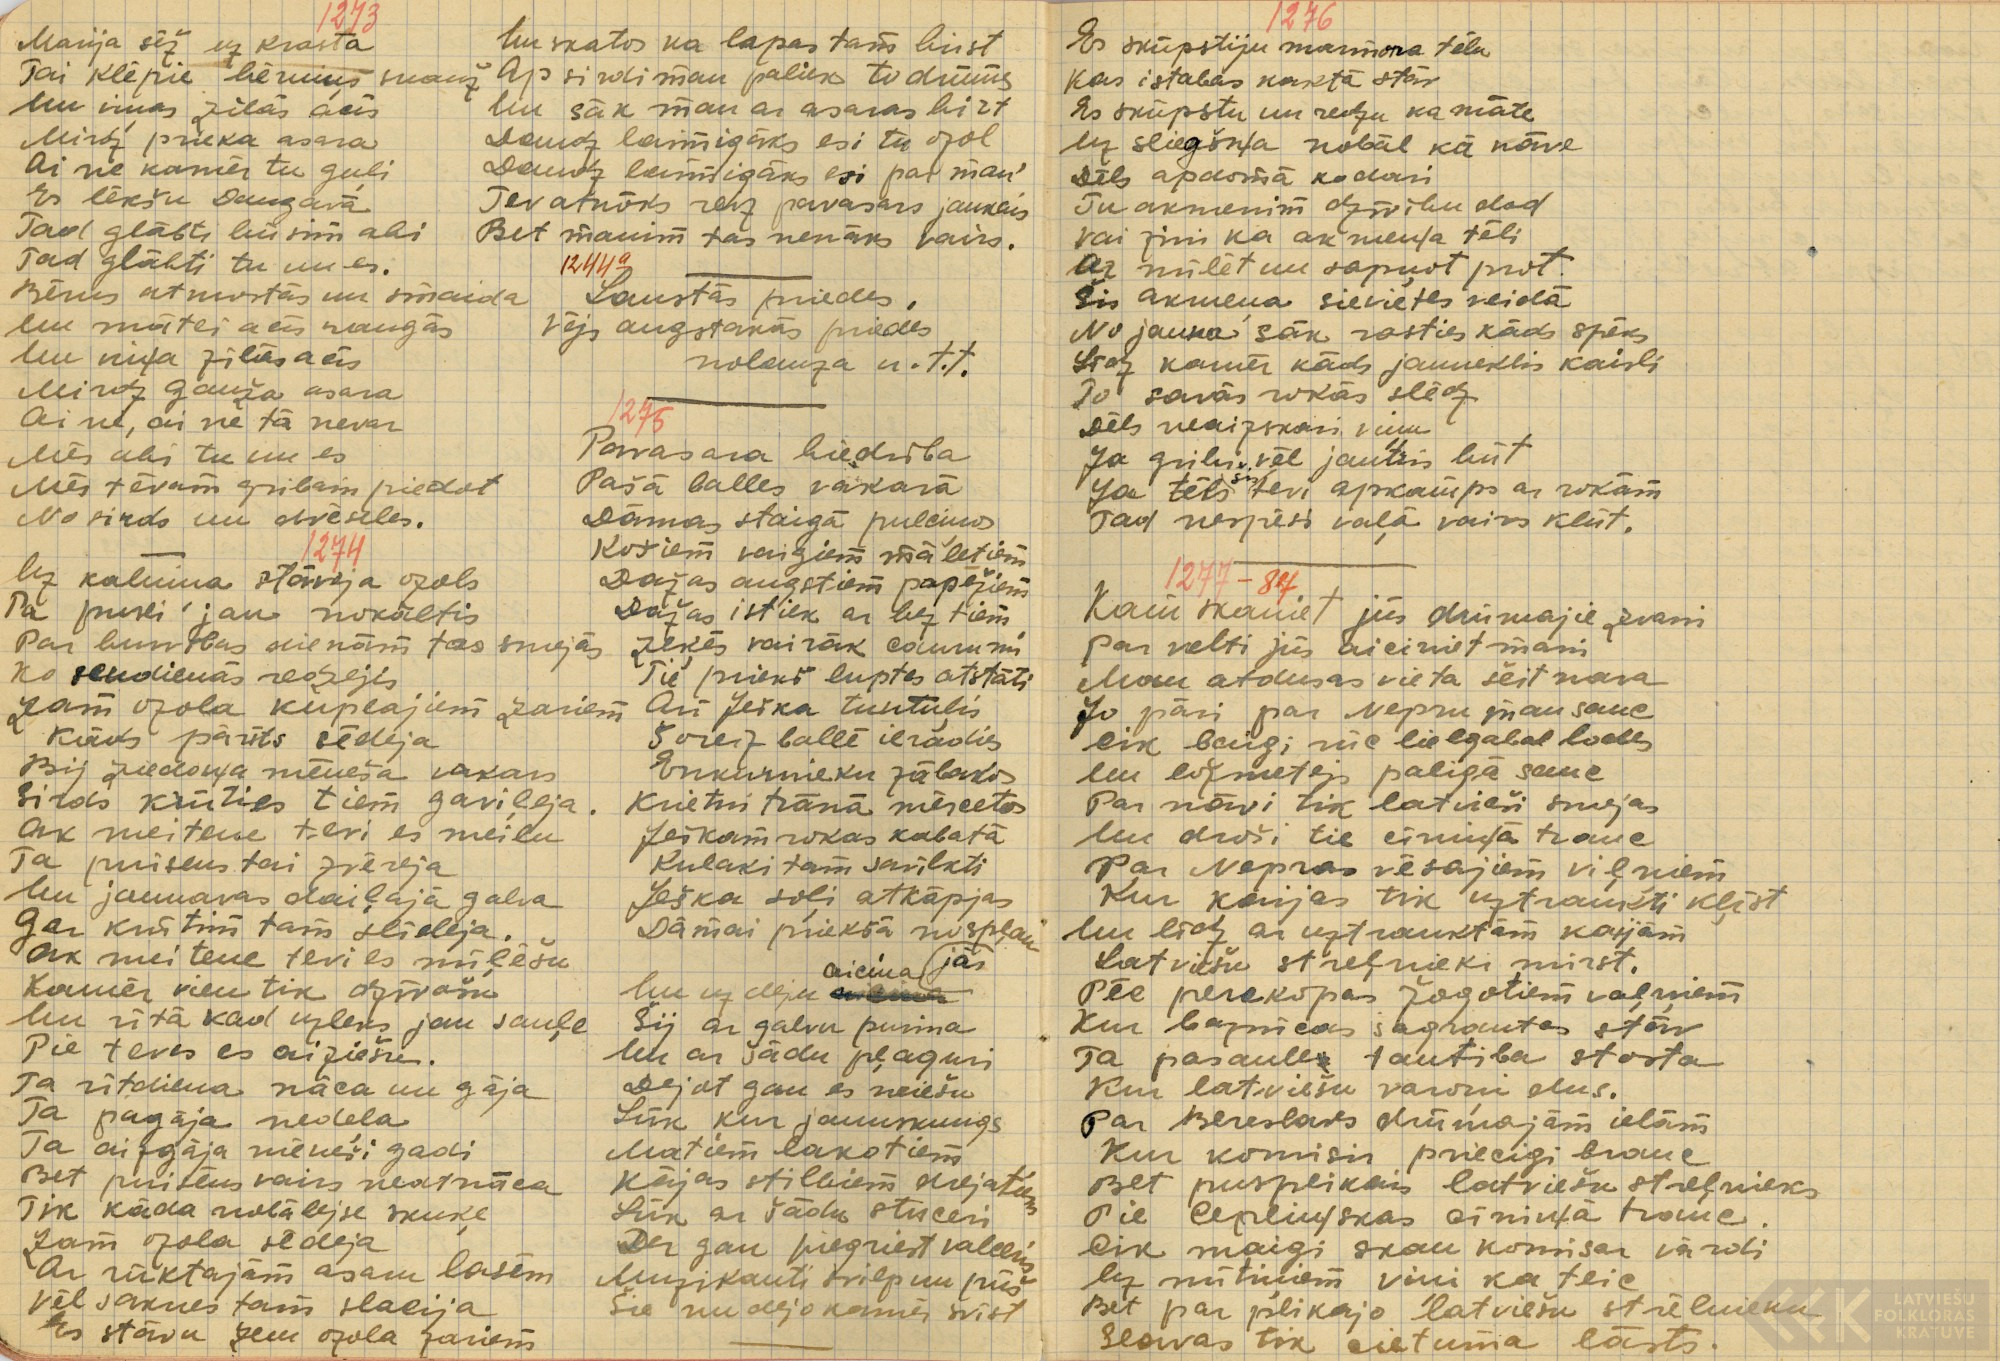 1273
Marija sēž uz krasta
Tai klēpie bērniņš snauž
Un viņas zilās acīs
Mirdz prieka asara
Ai ne kamēr tu guli
Es lēkšu Daugavā
Tad glābti būsim abi
Tad glābti tu un es.
Bērns atmostās un smaida
Un mātei acīs raugās
Un viņa zilās acīs
Mirdz gauža asara
Ai nē, ai nē tā nevar
Mēs abi tu un es
Mēs tēvam gribam piedot
No sirds un dvēseles.
1274
Uz kalniņa stāvēja ozols
Pa pusei jau nokaltis
Par burvības dienām tas smejās
Ko sendienās redzējis
Zam ozola kuplajiem zariem
Kāds pārits sēdēja
Bij ziedoņa mēneša vakars
Sirds krūtīes tiem gavilēja.
Ak meitene tevi es mīlu
Tā puisens tai zvēreja
Un jaunavas daiļajā galva
Gar krūtim tam slīdēja.
Ak meitene tevi es mīlēšu
Kamēr vien tik dzīvošu
Un rītā kad uzlēks jau saule
Pie tevis es aiziešu.
Tā rītdiena nāca un gāja
Tā pagāja nedēla
Tā aizgāja mēneši gadi
Bet puisēns vairs neatnāca
Tik kāda nobālējse skuķe
Zam ozola sēdēja
Ar rūktajām asaru lāsēm
Vēl saknes tam slacija
Es stāvu zem ozola zariem
Un skatos ka lapas tam birst
Ap sirdi man paliek tu drūms
Un sāk man ar asaras birt
Daudz laimīgāks esi tu ozol
Daudz laimīgāks esi par man'
Tev atnāks reiz pavasars jaukais
Bet manim tas nenāks vairs.
1244a
Laustās priedes.
Vējš augstākās priedes
nolauza u.t.t.
1275
Pavasara biedrība
Pašā balles vakarā
Dāmas staigā pulciņos
Košiem vaigiem mālētiem
Dažas augstiem papēžiem
Dažas istiek ar bez tiem
Zeķēs vairāk caurumi
Tie prieks luptes atstāti
Arī Ješka tuntulis
Šoreiz ballē ierādis
Enkurnieku zābakos
Krietni trānā mērcētos
Ješkam rokas kabatā
Kulaki tam savilkti
Ješka soļi atkāpjas
Dāmai priekšā nospļau
jās
Un uz deju aicina
Šij ar galvu purina
Un ar šādu pļaguri
Dejot gan es neiešu
Lūk kur jaunskungs
Matiem lakotiem
Kājas stilbiem dejatiem
Lūk ar šādu stuceri
Der gan piegriest valceri
Muzikanti svilp un pūš
Šie nu dejo kamēr svīst
1276
Es skūpstiju marmora tēlu
Kas istabas kaktā stāv
Es skūpstu un redzu ka māte
Uz sliegšņa nobāl kā nāve
Dēls apdomā ko dari
Tu akmenim dzīvību dod
Vai zini ka akmeņa tēli
Az mīlēt un sapņot prot.
Šis akmeņa sievietes veidā
No jauna sāk rasties kāds spēks
Līdz kamēr kāds jauneklis kaisli
To savās rokās slēdz
Dēls neaizskari viņu
Ja gribi vēl jautris būt
Ja tēls šis tevi apkamps ar rokām
Tad nespēsi vaļā vairs kļūt.
1277-84
Kam skaniet jūs drūmajie zvani
Par velti jūs aiciniet mani
Man atdusas vieta šeit nava
Jo pāri par Nepru man sauc
Cik baigi rūc lielgabal lodes
Un ložmetējs paligā sauc
Par nāvi tik latvieši smejas
Un droši tie cīniņā trauc
Par Nepras vēsajiem viļņiem
Kur kaijas tik uztraukti klīst
Un līdz ar uztrauktām kaijām
Latviešu strēļnieki mirst.
Pēc perekopas žogotiem vaļņiem
Kur baznīcas sagrautas stāv
Tā pasaules tautība stāsta
Kur latviešu varoņi dus.
Par Bereslavs drūmajām ielām
Kur komisiri priecīgi brauc
Bet pusplikais latviešu strēļnieks
Pie Cepliņskas cīniņā trauc.
Cik maigi skan komisar vārdi
Uz mītiņiem viņi ka teic
Bet par plikajo latviešu strēlnieku
Slavas tik cietuma lāsts.
LATVIEŠU
FOLKLORAS
KRĀTUVE